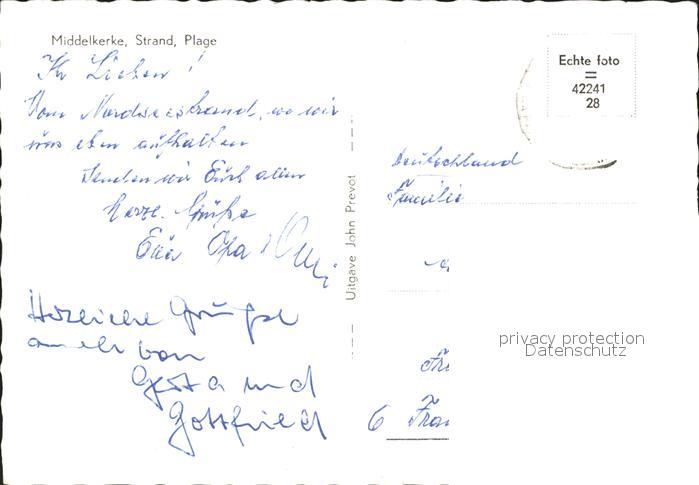 Middelkerke, Strand, Plage
Ihr Lieben!
Vom Nordseestrand, wo wir
uns eben aufhalten
senden wir Euch allen
herzl. Grüße
Opa
Herzliche Grüße
auch von
Gerta und
Gottfried
Uitgave John Prevot
Echte foto
=
42241
28
Deutschland
Familie
6 Fran
privacy protection
Datenschutz